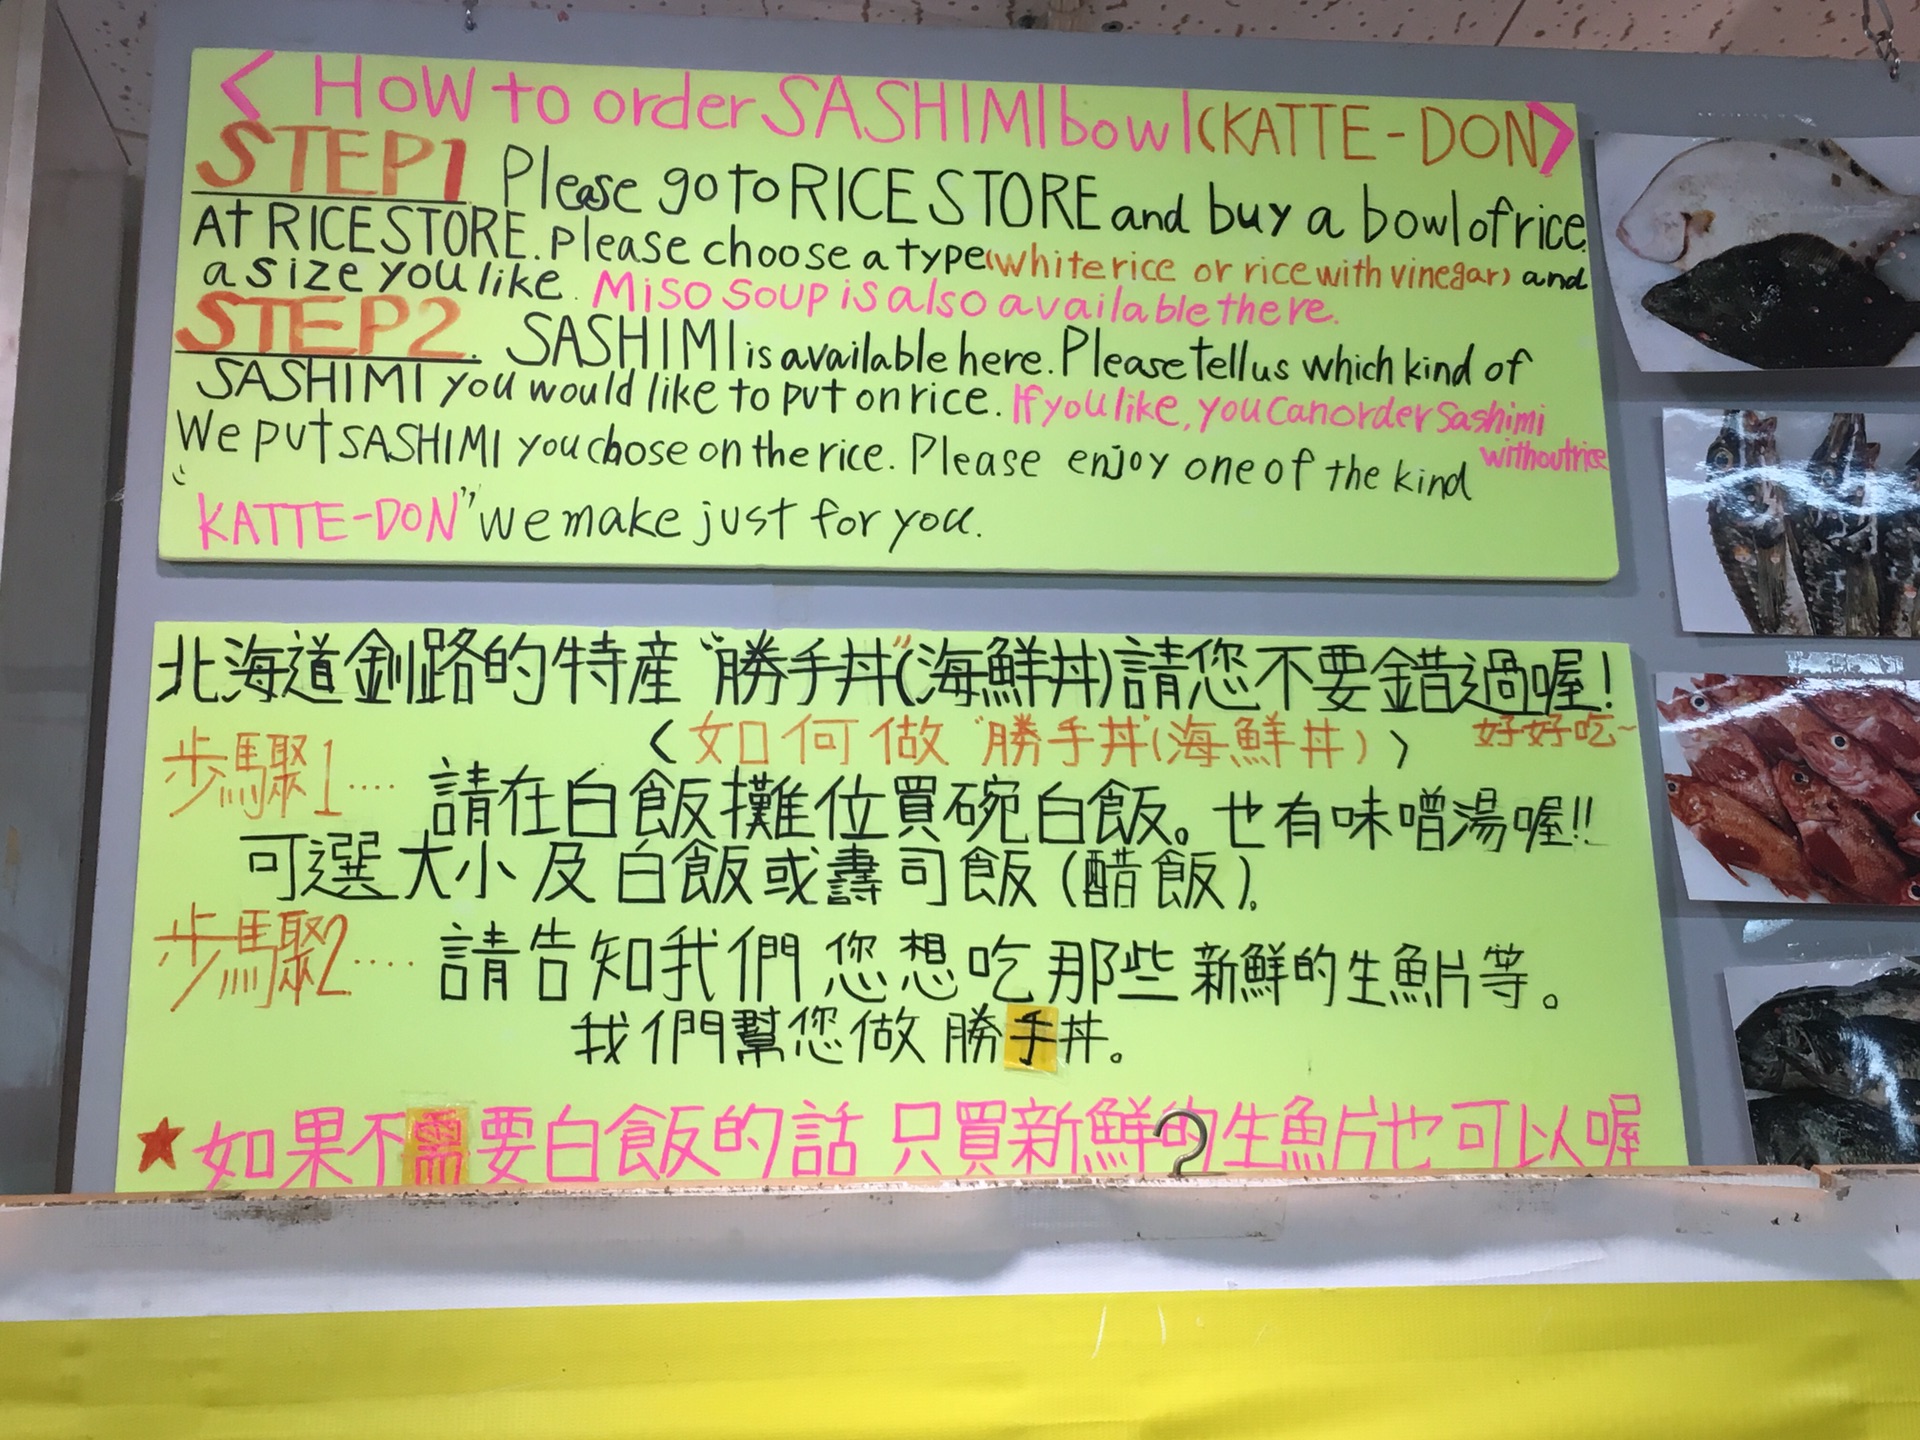 <HOW to order SASHIMI bowl(KATTE-DON)>
STEP1 Please go to RICE STORE and buy a bowl of rice.
At RICE STORE. Please choose a type(white rice or rice with vinegar) and
a size you like. Miso soup is also available there.
STEP2. SASHIMI is available here. Please tell us which kind of
SASHIMI you would like to put on rice. If you like, you can order Sashimi
without rice
We put SASHIMI you chose on the rice. Please enjoy one of the kind
"KATTE-DON" we make just for you.
北海道釧路的特産"勝手丼"(海鮮丼)請您不要錯過喔!
<如何做"勝手丼"(海鮮丼)> 好好吃~
步驟1.... 請在白飯攤位買碗白飯。也有味噌湯喔!!
可選大小及白飯或壽司飯(醋飯)。
步驟2.... 請告知我們您想吃那些新鮮的生魚片等。
我們幫您做勝手丼。
★如果不需要白飯的話 只買新鮮的生魚片也可以喔